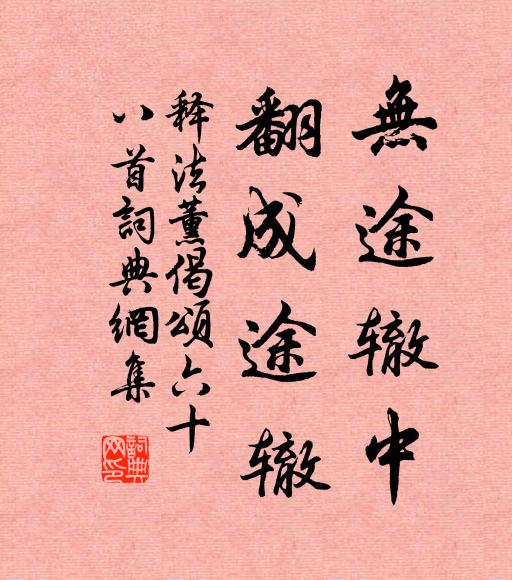 無途辙中
翻成途辙
释法薰偈頌六十
八首詞典網集
詞典網印